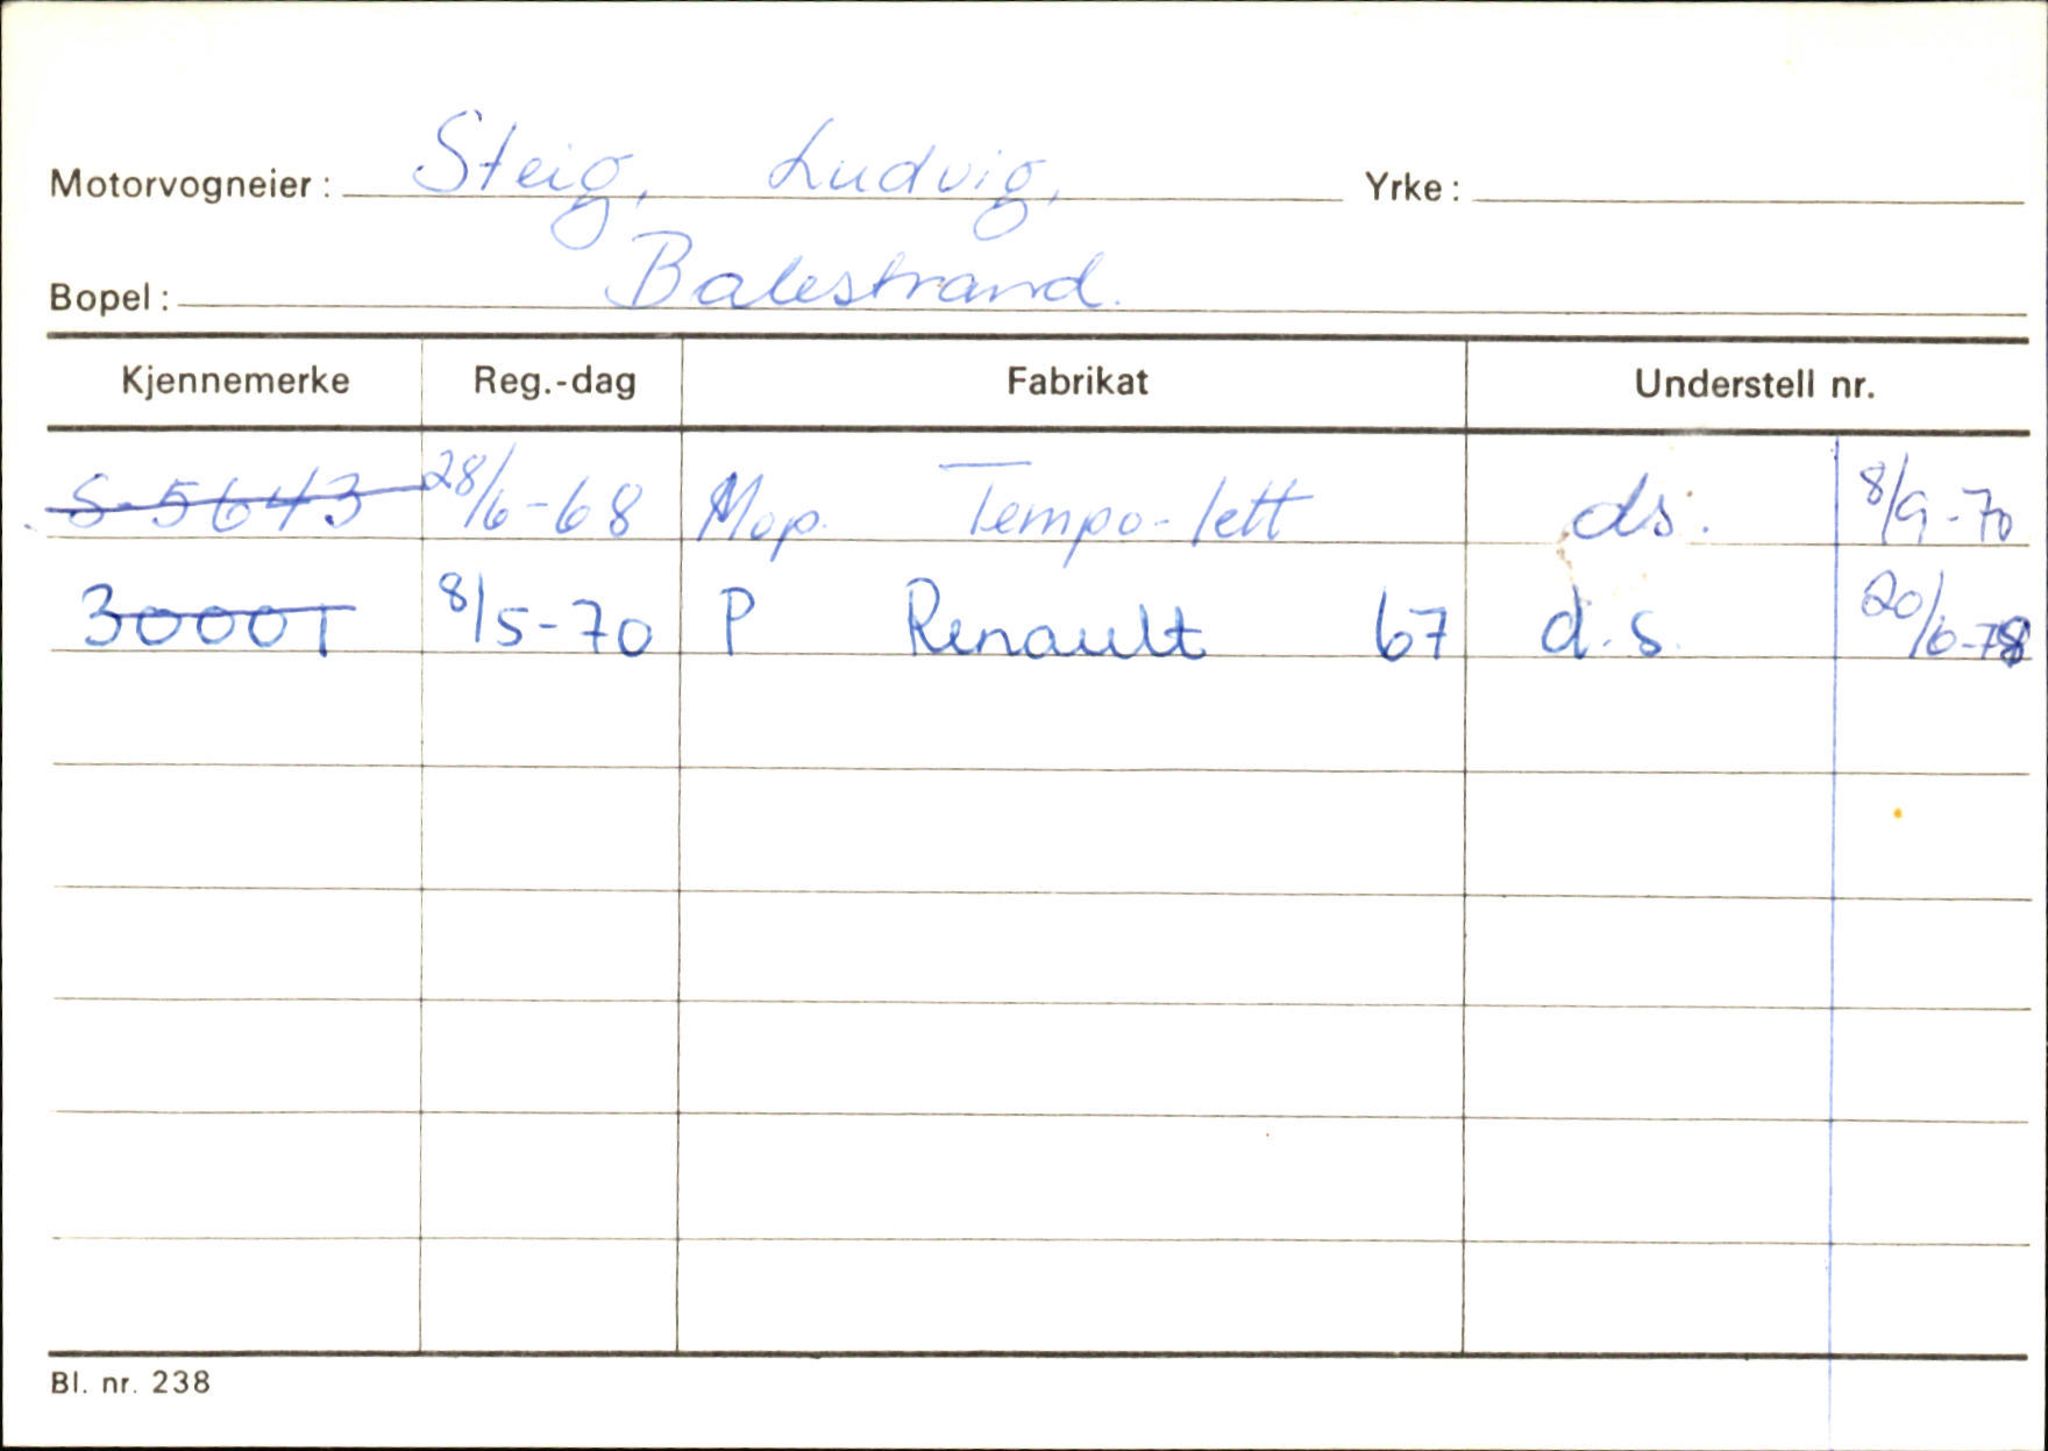 Motorvogneier: Steig, Ludvig, Yrke:
Bopel: Balestrand.
Kjennemerke Reg.-dag Fabrikat Understell nr.
S-5643 28/6-68 Mop. Tempo-lett ds. 8/9-70
30001 8/5-70 P Renault 67 d.s. 20/6-78
Bl. nr. 238